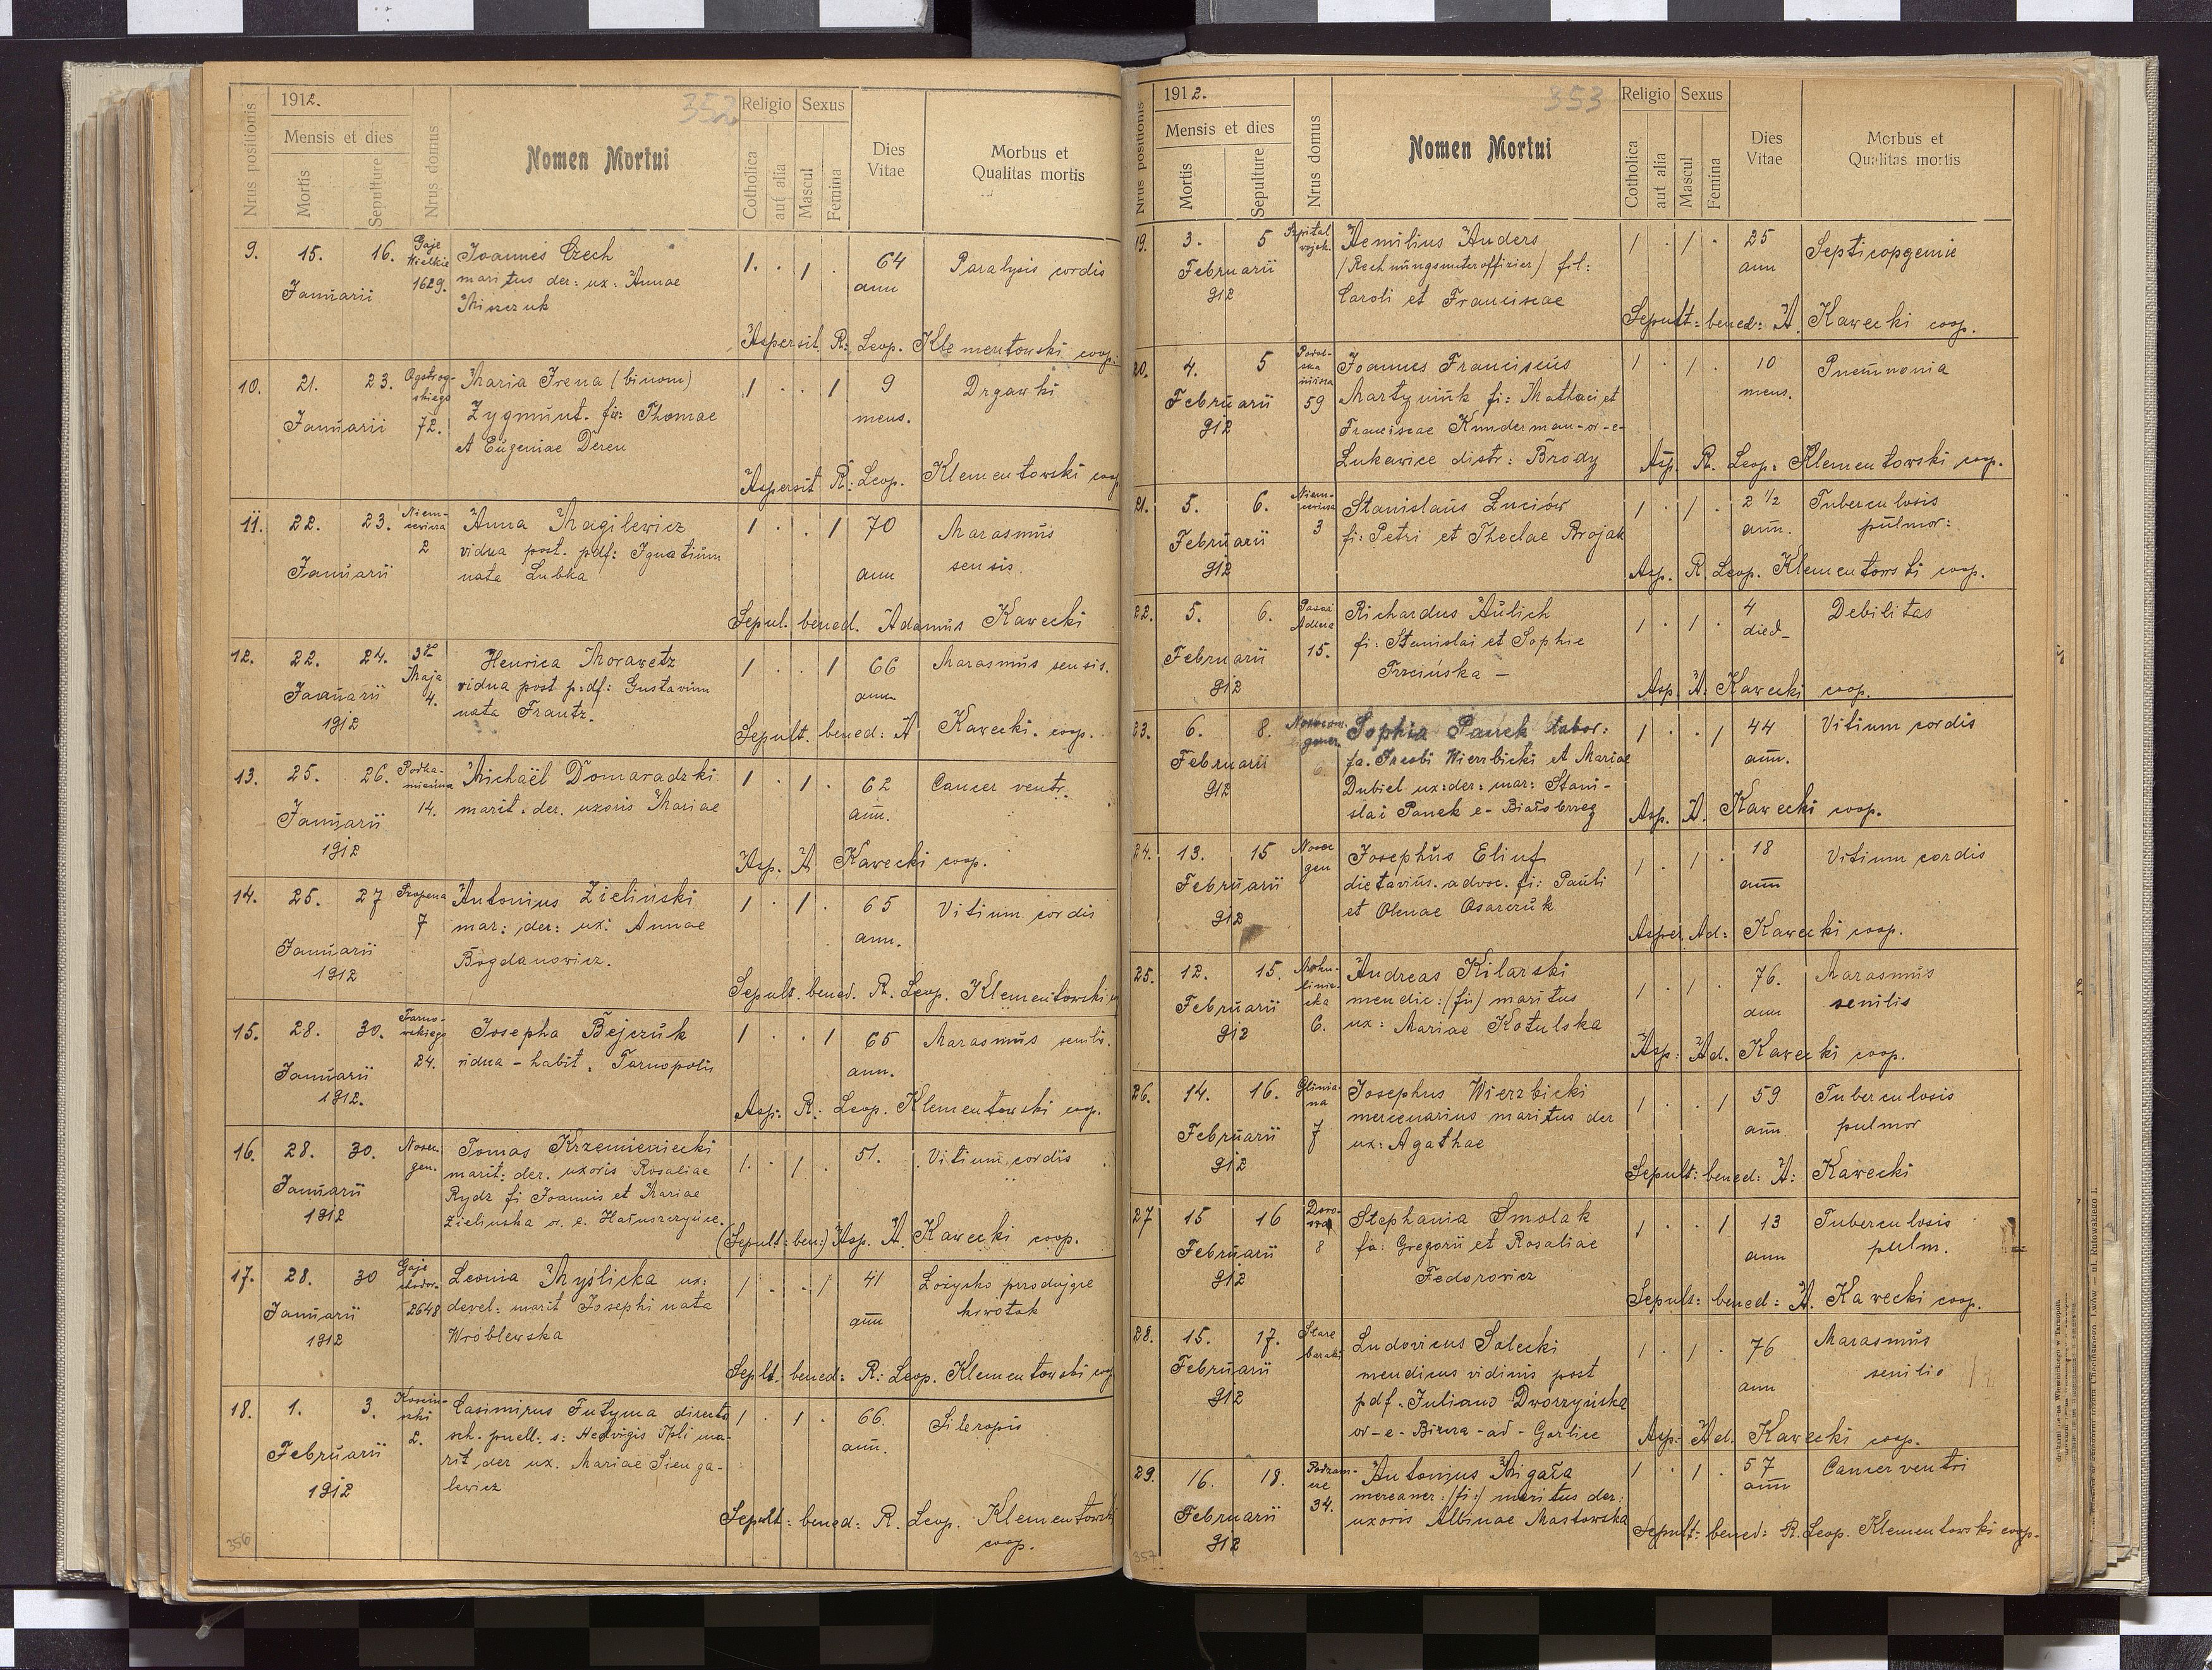 352
1912.
Nrus positionis
Mensis et dies
Mortis
Sepulture
Nrus domus
Nomen Mortui
Religio
Sexus
Cotholica
aut alia
Mascul
Femina
Dies Vitae
Morbus et
Qualitas mortis
9. 15. 16. Gaje Wielkie 1629. Joannes Czech 1. . 1 . 64 Paralysis cordis
Januarii maritus der: ux: Annae ann
Miszczuk
Aspersit R: Leop. Klementowski coop.
10. 21. 23. 72. Maria Irena (binom) 1 . . 1 9 Drgawki
Januarii Zygmunt. fa: Thomae mens.
et Eugeniae Dereu
Aspersit R: Leop. Klementowski coop
11. 22. 23. 2 Anna Magilewicz 1 . . 1 70 Marasmus
Januarii vidua post. pdf: Ignatium ann sensis.
nata Lubka
Sepul. bened. Adamus Kawecki
12. 22. 24. 3go Maja 4. Henrica Morawetz 1 . . 1 66 Marasmus sensis.
Januarii vidua post pdf: Gustavum ann
1912 nata Frantz.
Sepult. bened: A Kawecki. coop.
13. 25. 26. 14. Michaël Domaradzki 1 . 1 . 62 Cancer ventr.
Januarii marit. der. uxoris Mariae ann.
1912
Asp. A Kawecki coop.
14. 25. 27 7 Antonius Zieliński 1 . 1 . 65 Vitium cordis
Januarii mar: der: ux: Annae ann.
1912 Bogdanowicz.
Sepult. bened. R. Leop. Klementowski
15. 28. 30. 24. Josepha Bejczuk 1 . . 1 65 Marasmus senilis.
Januarii vidua - habit. Tarnopolis ann.
1912.
Asp: R: Leop. Klementowski coop.
16. 28. 30. Nosoc. gen. Tomas Krzemieniecki 1. . 1 . 51. Vitium cordis
Januarii marit: der. uxoris Rosaliae
1912 Rydz fi Joannis et Mariae
Zielinska or. e.
(Sepult: ben:) Asp. A. Kawecki coop.
17. 28. 30 Gaje 2648 Leonia Myślicka ux: 1 . . 1 41 Łożysko przodujące
Januarii marit Josephi nata ann krwotok
1912 Wróblewska
Seplt: bened: R: Leop. Klementowski coop
18. 1. 3. 2. Casimirus Futyma 1 . 1 . 66.
Februarii sch. puell. s: Hedvigis Tpli ma- ann.
1912 rit der ux. Mariae Sienga-
lewicz
Sepult: bened: R. Leop. Klementowski
coop.
356
353
1912.
Nrus positionis
Mensis et dies
Mortis
Sepulture
Nrus domus
Nomen Mortui
Religio
Sexus
Cotholica
aut alia
Mascul
Femina
Dies Vitae
Morbus et
Qualitas mortis
19. 3. 5 Szpital wojsk. Aemilius Anders 1 . 1 . 25
Februarii (Rechnungsunteroffizier) fil: ann
912 Caroli et Franciscae
Sepult: bened: A. Kawecki coop.
20. 4. 5 59 Joannes Franciscus 1 . 1 . 10 Pneumonia
Februarii Martyniuk fi: Mathaei et mens.
912 Franciscae Kunderman-or-e-
Lukawice distr: Brody
Asp. R. Leop: Klementowski coop.
21. 5. 6. 3 Stanislaus Łuciów 1 . 1 . 2 1/2 Tuberculosis
Februarii fi: Petri et Theclae Brojak ann. pulmor:
912
Asp. R. Leop. Klementowski coop.
22. 5. 6. 15. Richardus Aulich 1 . 1 . 4 Debilitas
Februarii fi: Stanislai et Sophie
912 Trzcińska -
Asp. A. Kawecki coop.
23. 6. 8. Sophia Panek labor: 1 . . 1 44 Vitium cordis
Februarii fa. Jacobi Wierzbicki et Mariae ann.
912 Dubiel ux: der: mar: Stani-
slai Panek e- Białobrzeg
Asp. A. Kawecki coop.
24. 13. 15 Nosoc gen Josephus Eliuf 1 . 1 . 18 Vitium cordis
Februarii dietarius. advoc. fi: Pauli ann
912 et Olenae Osarczuk
Asper. Ad: Kawecki coop.
25. 12. 15. 6. Andreas Kilarski 1 . 1 . 76. Marasmus
Februarii mendic: (fi) maritus ann senilis
912 ux: Mariae Kotulska
Asp: Ad. Kawecki coop.
26. 14. 16. Gliniana 7 Josephus Wierzbicki 1 . . 1 59 Tuberculosis
Februarii mercenarius maritus der ann pulmor
912 ux: Agathae
Sepult: bened: A: Kawecki
27 15 16 8 Stephania Smolak 1 . . 1 13 Tuberculosis
Februarii fa: Gregorii et Rosaliae ann pulm.
912 Fedorowicz
Sepult: bened: A. Kawecki coop.
28. 15. 17. Stare baraki Ludovicus Solecki 1 . 1 . 76 Marasmus
Februarii mendicus viduus post ann senilis
912 pdf. Juliano Dworzyńska
or-e- -ad-Gorlice
Asp: Ad. Kawecki coop.
29. 16. 18. 34. Antonius Migała 1 . 1 . 57 Cancer ventri
Februarii mercener: (fi:) maritus der: ann
912 uxoris Albinae Mastowska
Sepult: bened: R. Leop. Klementowski coop.
357